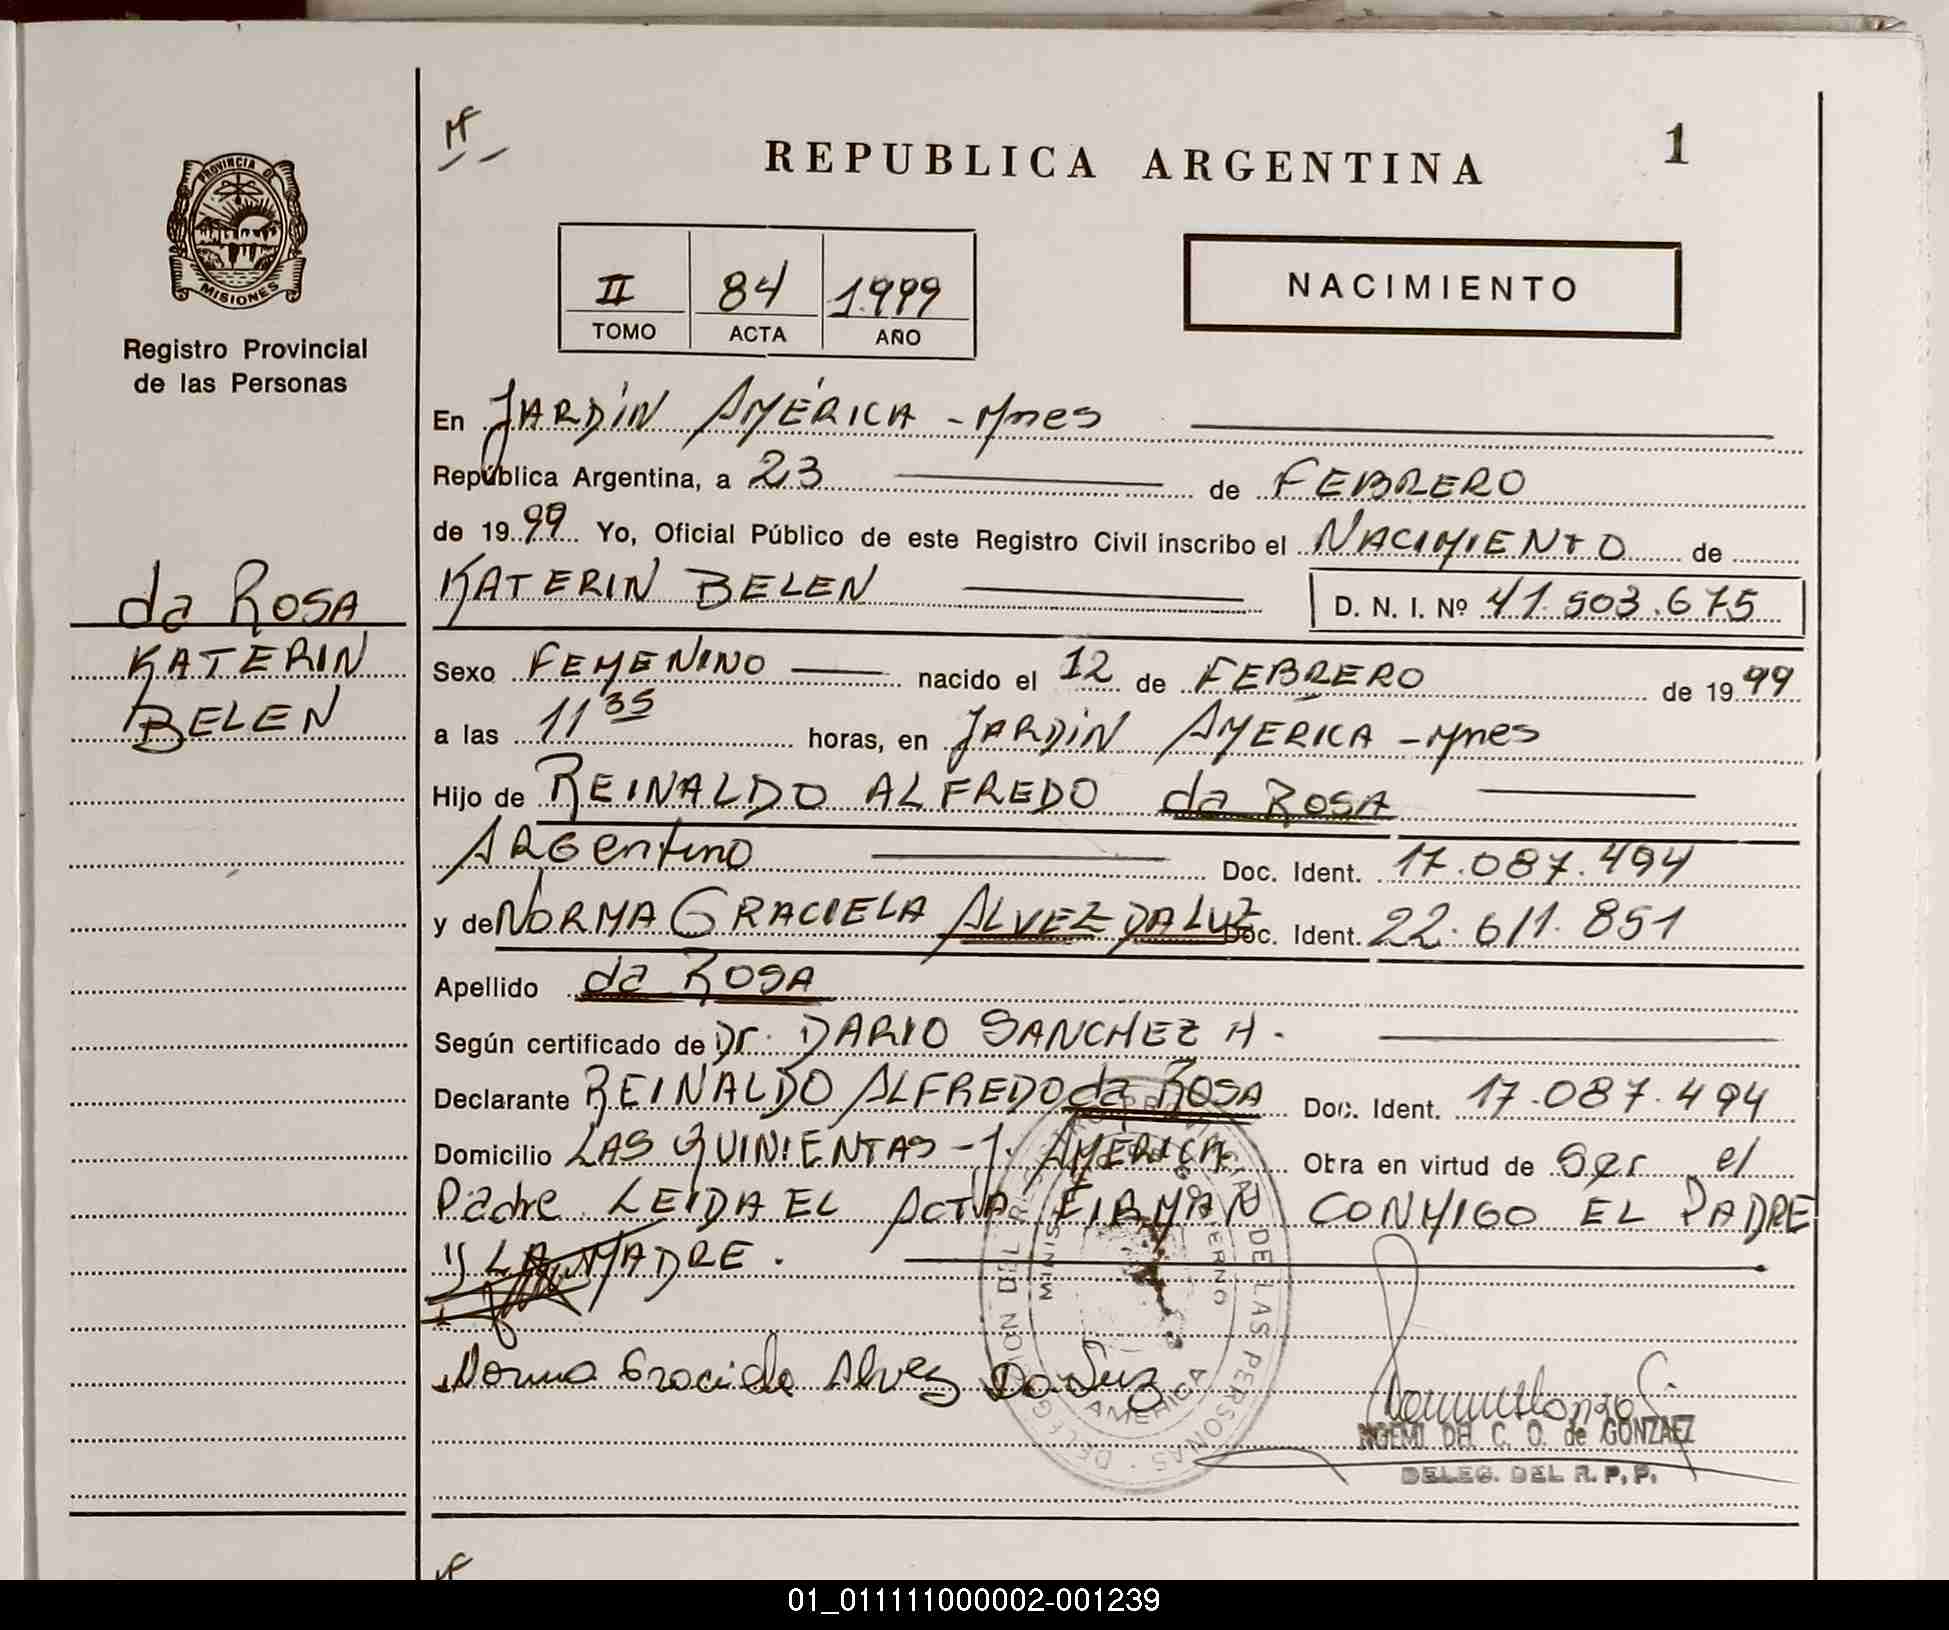 REPUBLICA ARGENTINA
1
PROVINCIA DE
MISIONES
Registro Provincial
de las Personas
II 84 1.999
TOMO ACTA AÑO
NACIMIENTO
da ROSA
KATERIN
BELEN
En JARDÍN AMÉRICA - Mnes
República Argentina, a 23 de FEBRERO
de 1999 Yo, Oficial Público de este Registro Civil inscribo el NACIMIENTO de
KATERIN BELEN D. N. I. Nº 41.503.675
Sexo FEMENINO nacido el 12 de FEBRERO de 1999
a las 11 35 horas, en JARDÍN AMERICA - Mnes
Hijo de REINALDO ALFREDO da ROSA
ARGentino Doc. Ident. 17.087.494
y de NORMA GRACIELA ALVEZ DA LUZ Doc. Ident. 22.611.851
Apellido da ROSA
Según certificado de Dr. DARIO SANCHEZ H.
Declarante REINALDO ALFREDO da ROSA Doc. Ident. 17.087.494
Domicilio LAS QUINIENTAS - J. AMÉRICA Obra en virtud de Ser el
Padre LEIDA EL ACTA FIRMAN CONMIGO EL PADRE
Y LA MADRE.
Norma Graciela Alvez Da Luz
DELEGACION DEL REGISTRO PROVINCIAL DE LAS PERSONAS
AMERICA
NOEMI DEL C. O. de GONZAEZ
DELEG. DEL R. P. P.
01_011111000002-001239